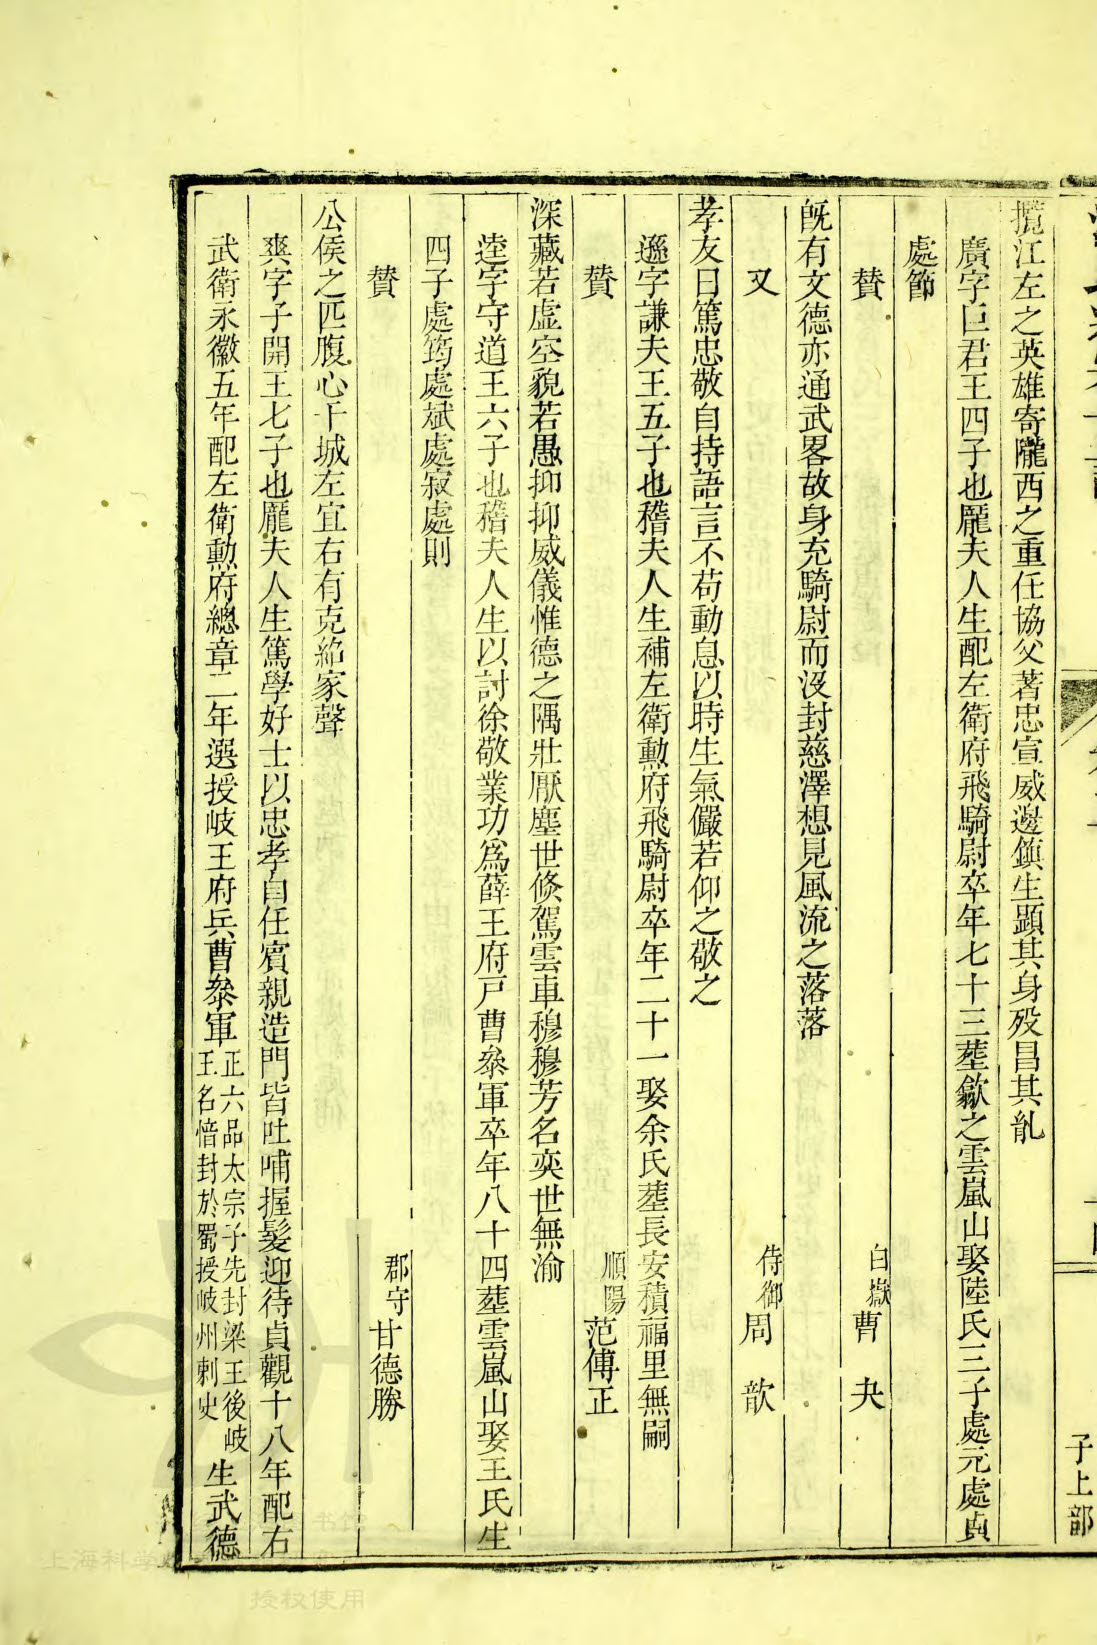 攬江左之英雄寄隴西之重任協父著忠宣威邊鎮生顕其身殁昌其胤
廣字巨君王四子也龎夫人生配左衛府飛騎尉卒年七十三塟歙之雲嵐山娶陸氏三子處元處貞
處節
賛
白嶽曹夬
旣有文德亦通武畧故身充騎尉而沒封慈澤想見風流之落落
又
侍御周歆
孝友曰篤忠敬自持語言不苟動息以時生氣儼若仰之敬之
遜字謙夫王五子也稽夫人生補左衛勳府飛騎尉卒年二十一娶余氏塟長安積福里無嗣
賛
順陽范傅正
深藏若虛空貌若愚抑抑威儀惟德之隅壯厭塵世倐駕雲車穆穆芳名奕世無渝
逵字守道王六子也稽夫人生以討徐敬業功爲薛王府戸曹叅軍卒年八十四塟雲嵐山娶王氏生
四子處筠處斌處寂處則
賛
郡守甘德勝
公侯之匹腹心干城左宜右有克紹家聲
爽字子開王七子也龎夫人生篤學好士以忠孝自任賓親造門皆吐哺握髪迎待貞觀十八年配右
武衛永徽五年配左衛勳府總章二年選授岐王府兵曹叅軍
正六品太宗子先封梁王後岐
王名愔封於蜀授岐州剌史
生武德
子上部
上海科学
书馆
授权使用